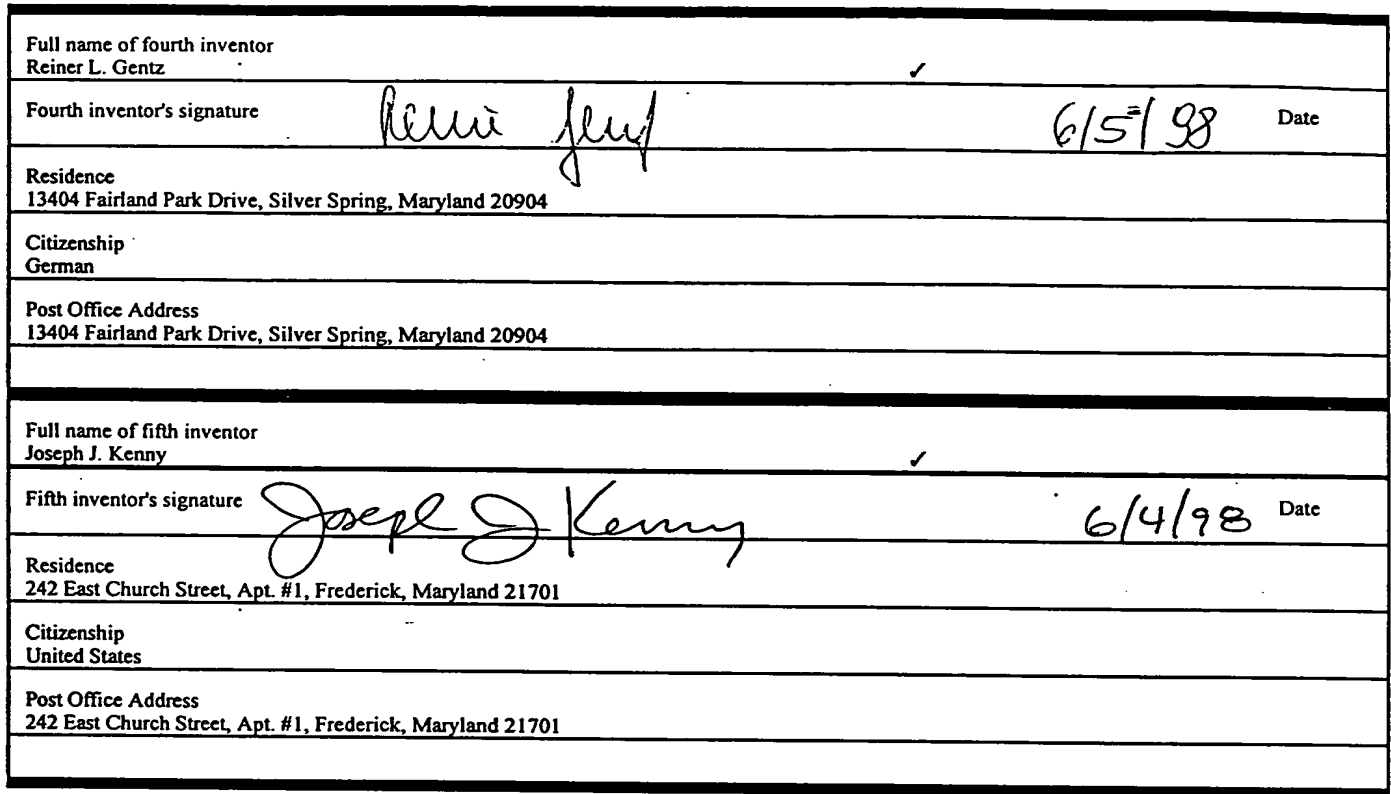 Full name of fourth inventor
Reiner L. Gentz ✓
Fourth inventor's signature 6/5/98 Date
Residence
13404 Fairland Park Drive, Silver Spring, Maryland 20904
Citizenship
German
Post Office Address
13404 Fairland Park Drive, Silver Spring, Maryland 20904
Full name of fifth inventor
Joseph J. Kenny ✓
Fifth inventor's signature Joseph J Kenny 6/4/98 Date
Residence
242 East Church Street, Apt. #1, Frederick, Maryland 21701
Citizenship
United States
Post Office Address
242 East Church Street, Apt. #1, Frederick, Maryland 21701